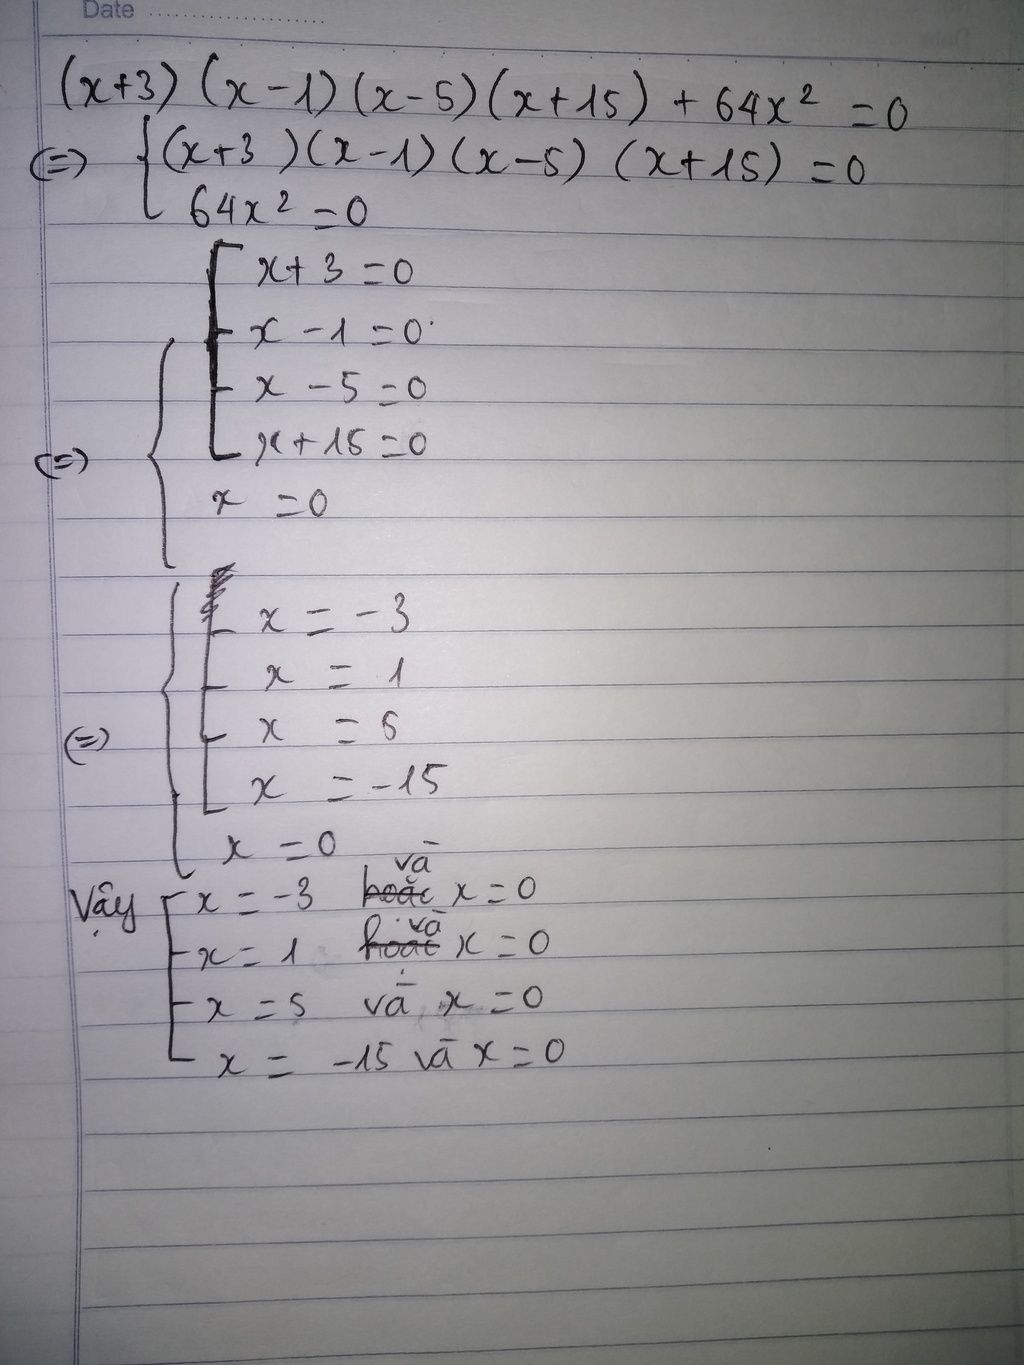 Date
(x+3) (x-1) (x-5) (x+15) + 64x² = 0
(=) (x+3) (x-1) (x-5) (x+15) = 0
64x² = 0
x+3 = 0
x - 1 = 0
x - 5 = 0
(=) x+15 = 0
x = 0
x = -3
x = 1
(=) x = 5
x = -15
x = 0
Vậy x = -3 hoặc và x = 0
x = 1 hoặc và x = 0
x = 5 và x = 0
x = -15 và x = 0